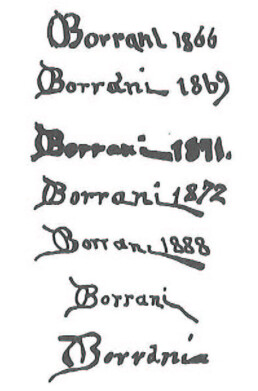 Borrani 1866
Borrani 1869
Borrani 1891.
Borrani 1872
Borrani 1888
Borrani
Borrania